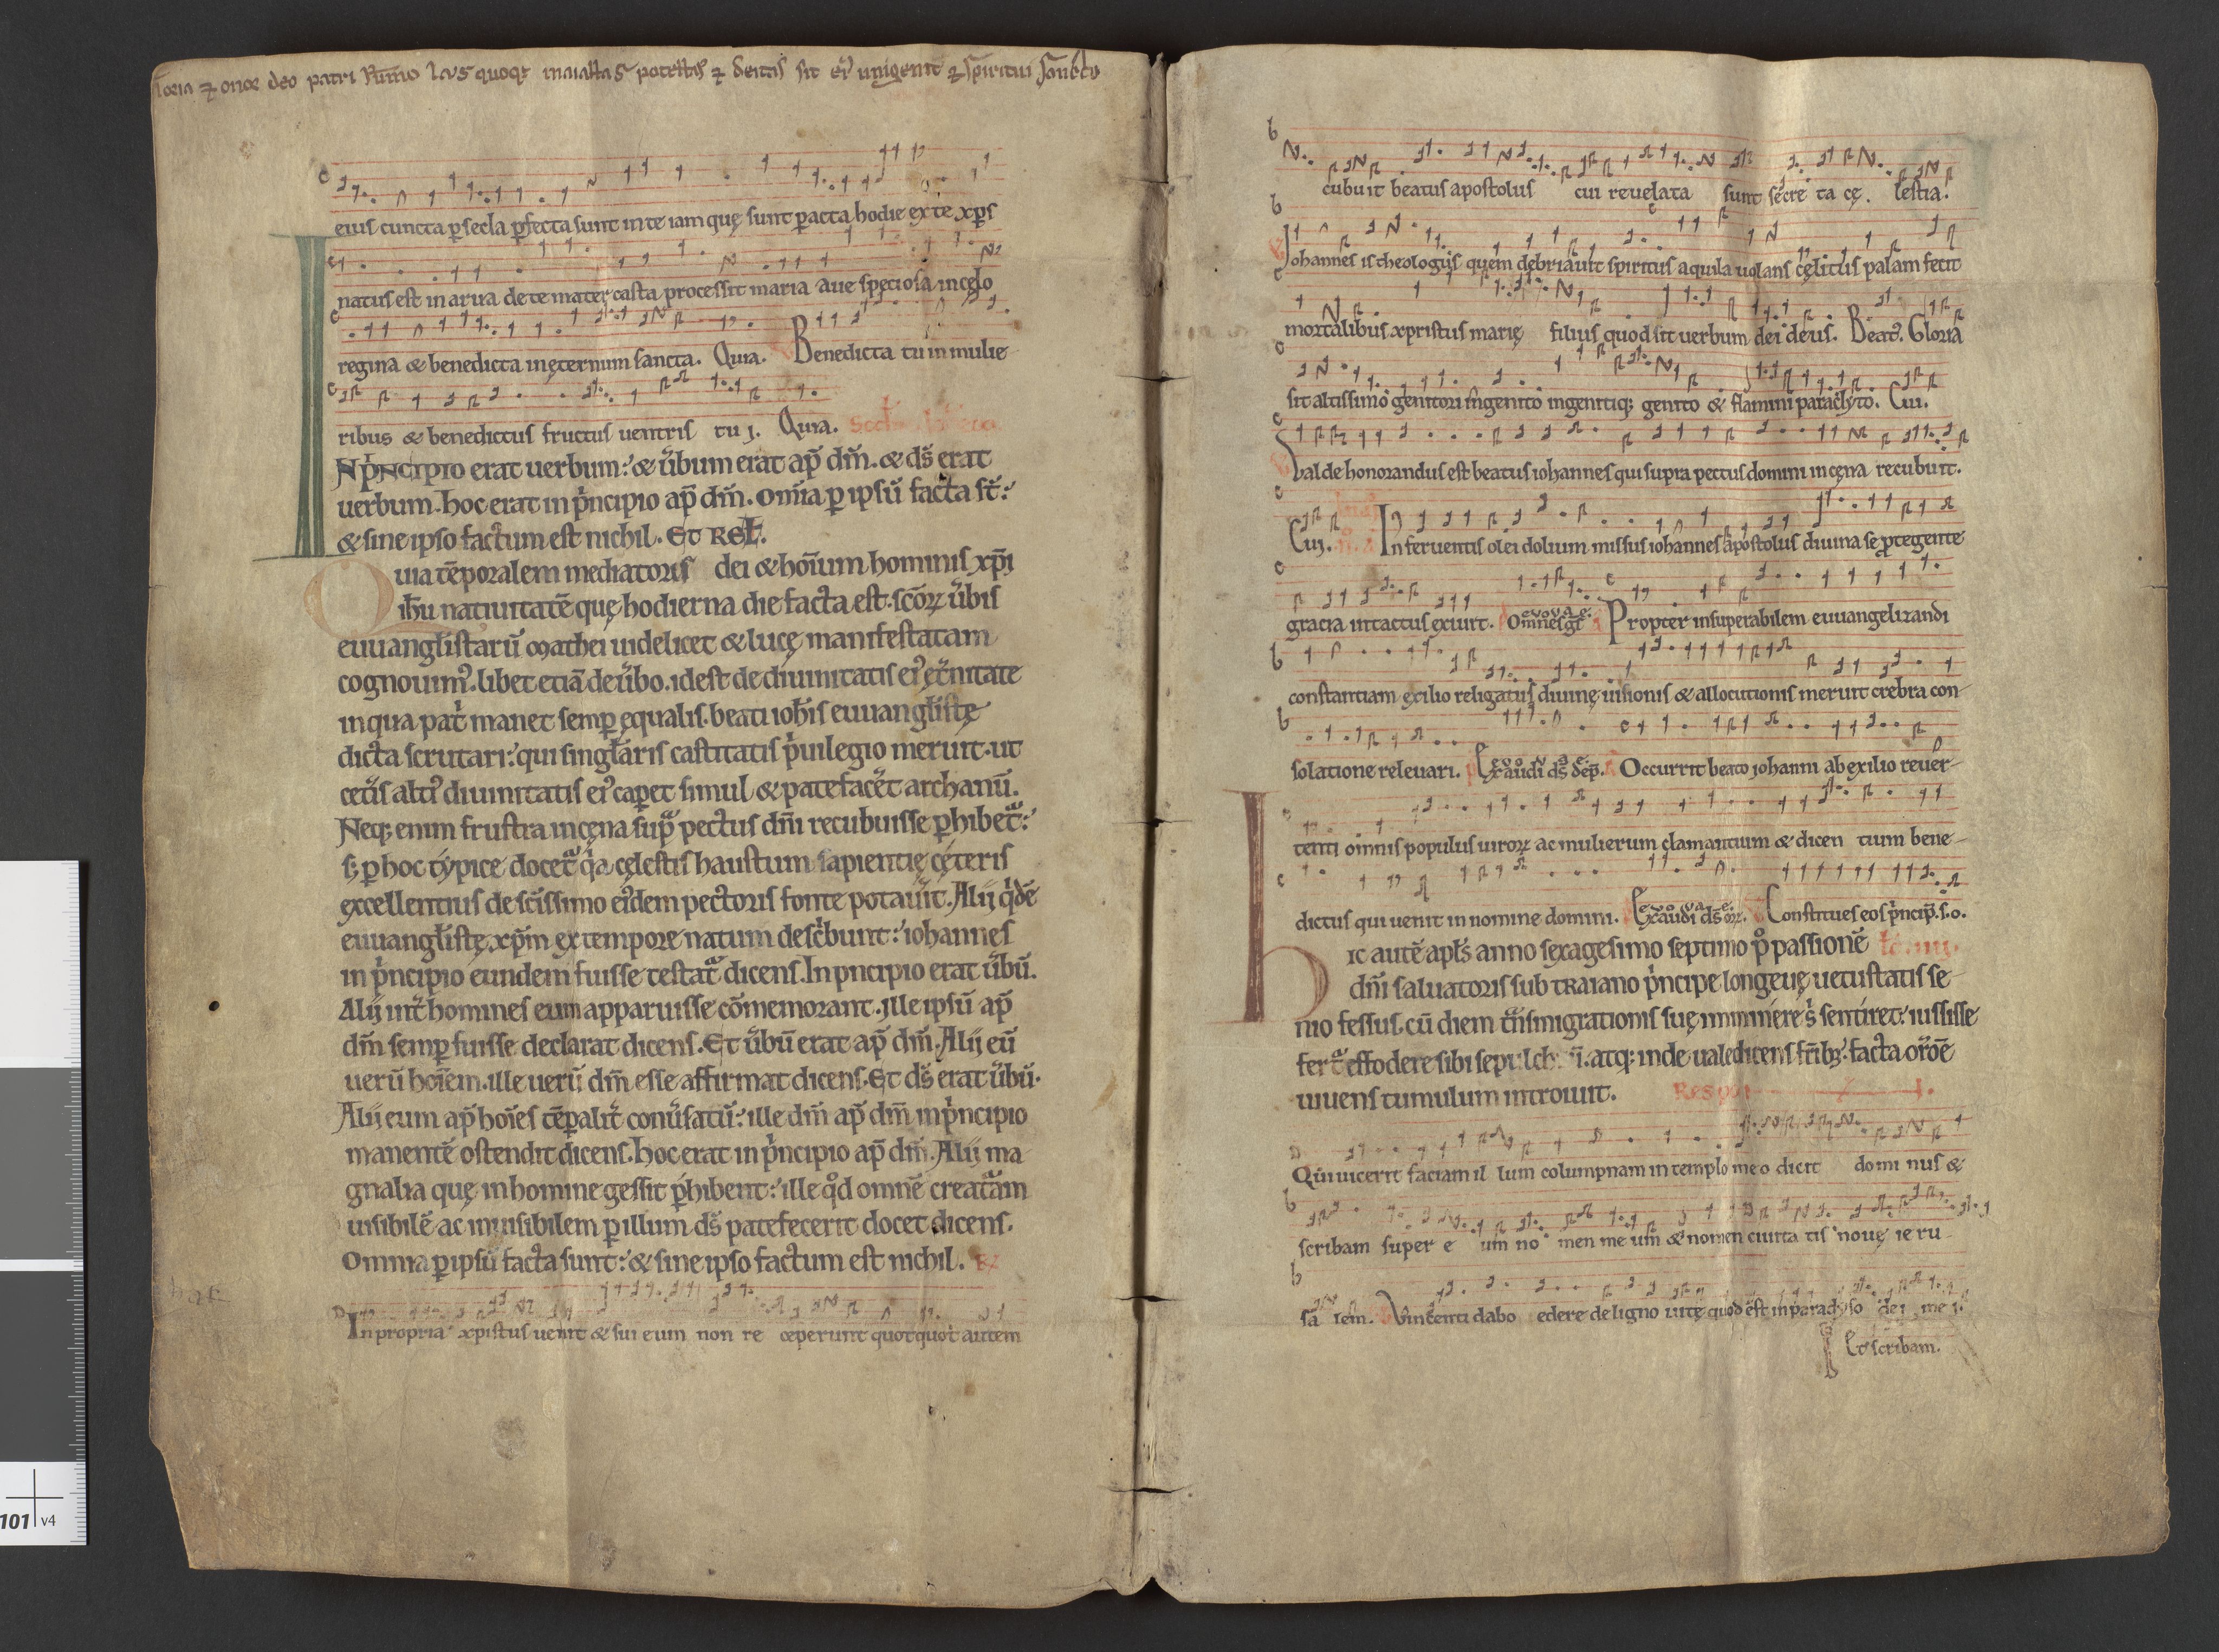 deo patri laus quoqꝫ maiastas potestas ⁊ deitas sit eiꝰ unigenit ⁊ spiritui sancto
eius cuncta ꝑ secla ꝑfecta sunt in te iam quę sunt ꝑacta hodie ex te xp̄s
natus est in arua de te mater casta processit maria Aue speciosa in cęlo
regina & benedicta in ęternum sancta. Quia. Benedicta tu in mulie
ribus & benedictus fructus uentris tuj. Quia.
IN pͥncipio erat uerbum: & u̓bum erat ap̄ dm̄. & ds̄ erat
uerbum. hoc erat in pͥncipio ap̄ dm̄. Om̄ia ꝑ ipsū facta st̄:
& sine ipso factum est nichil. Et REL.
Quia tēporalem mediatoris dei & hoīum hominis xp̄i
ih̄u natiuitatē quę hodierna die facta est. scōꝝ u̓bis
euuanglistarū Mathei uidelicet & lucę manifestatam
cognouimꝰ. libet etiā de u̓bo. idest de diuinitatis eiꝰ ęt̓nitate
in qua pat̓ manet semꝑ ęqualis. beati ioh̄is euuanglistę
dicta scrutari: qui singlaris castitatis pͥuilegio meruit. ut
cet̓is altiꝰ diuinitatis eiꝰ caꝑet simul & patefacet̓ archanū.
Neqꝫ enim frustra in cęna supᷓ pectus dn̄i recubuisse ꝑhibetᷓ:
sꝫ ꝑ hoc typice docetᷓ qͥa cęlestis haustum sapientię cęteris
excellentius de sc̄issimo eiꝰdem pectoris fonte potauit̓. Alij qͥdē
euuanglistę xp̄m ex tempore natum descͥbunt: iohannes
in pͥncipio eundem fuisse testatᷓ dicens. In pncipio erat u̓bū.
Alij int̓ homines eum apparuisse cōmemorant. ille ipsū ap̄
dm̄ semꝑ fuisse declarat dicens. Et u̓bū erat ap̄ dm̄. Alij eū
uerū hoīem. ille uerū dm̄ esse affirmat dicens. Et ds̄ erat u̓bū.
Alij eum ap̄ hoīes tēꝑalit̓ conu̓satū: ille dm̄ ap̄ dm̄ in pͥncipio
manentē ostendit dicens. hoc erat in pͥncipio ap̄ dm̄. Alij ma
gnalia quę in homine gessit ꝑhibent: ille qͦd omnē creatᷓam
uisibilē ac inuisibilem ꝑ illum ds̄ patefecerit docet dicens.
Omnia ꝑ ipsū facta sunt: & sine ipso factum est nichil.
In propria xpistus uenit & sui eum non re ceperunt quotquot autem
cubuit beatus apostolus cui reuelata sunt secre ta cę. lestia.
Johannes is theologus quem debriauit spiritus aquila uolans cęlitus palam fecit
mortalibus xpristus marię filius quod sit uerbum dei deus. Beatꝰ. Gloria
sit altissimo genitori ingenito ingenitiqꝫ genito & flamini paraclyto. Cui.
Valde honorandus est beatus iohannes qui supra pectus domini in cęna recubuit.
Cuj. In feruentis olei dolium missus iohannes apostolus diuina se ꝓtegente
gracia intactus exiuit. evovae. Omnes gē Propter insuperabilem euuangelizandi
constantiam exilio religatus diuinę uisionis & allocutionis meruit crebra con
solatione releuari. evovae. Exaudi ds̄ dep̄. Occurrit beato johanni ab exilio reuer
tenti omnis populus uiroꝝ ac mulierum clamantium & dicen tium bene
dictus qui uenit in nomine domini. evovae. Exaudi ds̄ or̄. Constitues eos pͥncip̄. s. o.
Hic autē aplˢ anno sexagesimo septimo pͦ passionē
dn̄i saluatoris sub TRAIANO pͥncipe longeuę uetustatis se
nio fessus. cū diem tᷓnsmigrationis suę imminere sͥ sentiret: iussisse
fertᷓ effodere sibi sepulch. atqꝫ inde ualedicens fr̄ibꝫ. facta or̄oē
uiuens tumulum introiuit. Respon
Qui uicerit faciam il lum columpnam in templo meo dicit domi nus &
scribam super e um no men me um & nomen ciuita tis nouę ieru
sa lem. Vincenti dabo edere de ligno uitę quod est in paradyso dei mei.
Et scribam.
101 v4